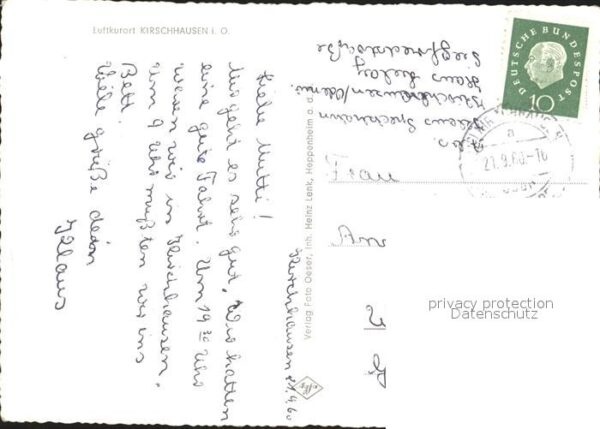 Luftkurort KIRSCHHAUSEN i. O.
Kirschhausen 21.9.60
Liebe Mutti!
Mir geht es sehr gut. Wir hatten
eine gute Fahrt. Um 19 30 Uhr
waren wir in Kirschhausen.
Um 9 Uhr mußten wir ins
Bett.
Viele Grüße dein
Klaus
Verlag Foto Oeser, Inh. Heinz Lenk, Heppenheim a. d.
Abs.
Klaus
Kirschhausen/Odenw.
Haus
Siegfriedstraße
DEUTSCHE BUNDESPOST
10
a
21.9.60.-16
Frau
An
privacy protection
Datenschutz